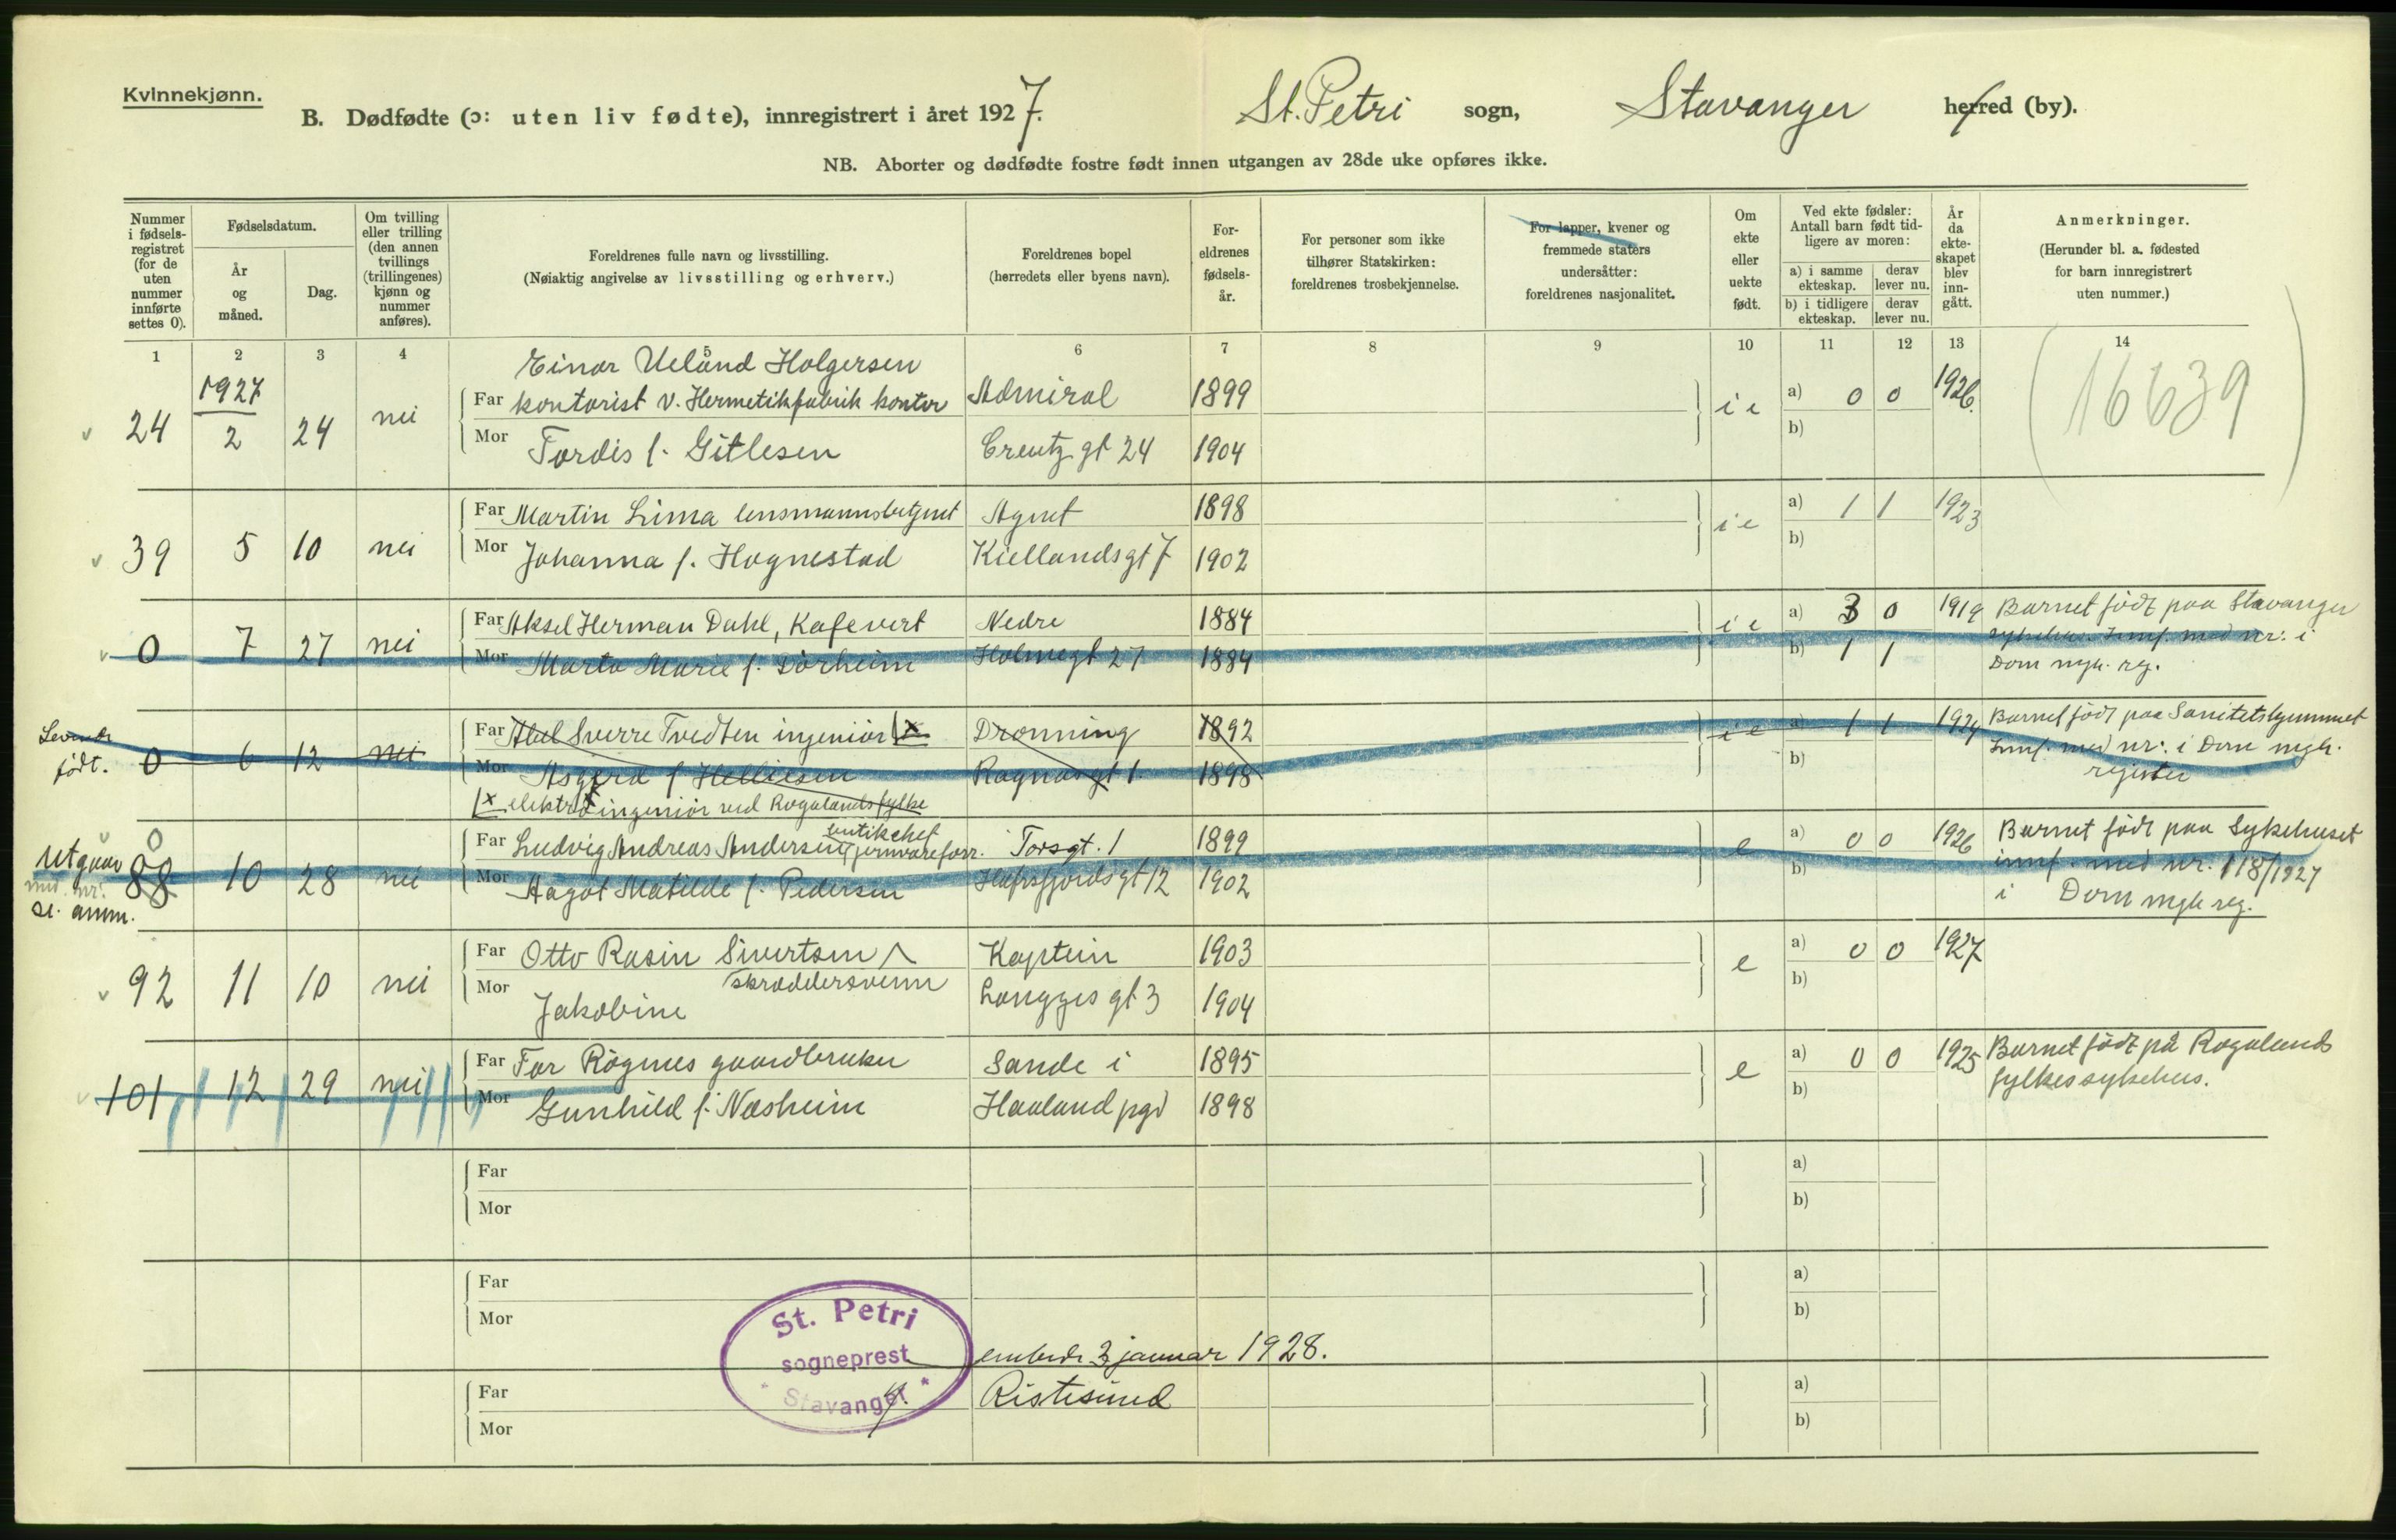 Kvinnekjønn.
B. Dødfødte (ɔ: uten liv fødte), innregistrert i året 1927. St. Petri sogn, Stavanger herred (by).
NB. Aborter og dødfødte fostre født innen utgangen av 28de uke opføres ikke.
Nummer i fødsels-registret (for de uten nummer innførte settes 0).
Fødselsdatum.
År og måned.
Dag.
Om tvilling eller trilling (den annen tvillings (trillingenes) kjønn og nummer anføres).
Foreldrenes fulle navn og livsstilling.
(Nøiaktig angivelse av livsstilling og erhverv.)
Foreldrenes bopel
(herredets eller byens navn).
For-eldrenes fødsels-år.
For personer som ikke tilhører Statskirken: foreldrenes trosbekjennelse.
For lapper, kvener og fremmede staters undersåtter: foreldrenes nasjonalitet.
Om ekte eller uekte født.
Ved ekte fødsler: Antall barn født tid-ligere av moren:
a) i samme ekteskap. derav lever nu.
b) i tidligere ekteskap. derav lever nu.
År da ekte-skapet blev inn-gått.
Anmerkninger.
(Herunder bl. a. fødested for barn innregistrert uten nummer.)
1 2 3 4 6 7 8 9 10 11 12 13 14
Einar Ueland Holgersen
1927
Far kontorist v. Hermetikfabrik kontor Admiral 1899 i e a) 0 0 1926. (16639)
24 2 24 nei Mor Tordis f. Gitlesen Creutz gt 24 1904 b)
Far Martin Lima lensmannsbetjent Agnet 1898 i e a) 1 1 1923
39 5 10 nei Mor Johanna f. Hognestad Kiellandsgt 7 1902 b)
Far Aksel Herman Dahl, Kafevert Nedre 1884 i e a) 3 0 1919 Barnet født paa Stavanger
0 7 27 nei Mor Marta Marie f. Dørheim Holmegt 27 1884 b) 1 1 sykehus. Innf. med nr. i
Dom mgh. reg.
Levende født.
Far Abel Sverre Tvedten ingeniør x Dronning 1892 i e a) 1 1 1924 Barnet født paa Sanitetshjemmet
0 6 12 nei Mor Asgerd f Helliesen Ragnasgt 1. 1898 b) Innf. med nr. i Dom mgh.
register
x elektroingeniør ved Rogalands fylke
butikchef
Far Ludvig Andreas Andersen jernvareforr. Torsgt. 1 1899 e a) 0 0 1926 Barnet født paa Sykehuset
Utgaar 0
88 10 28 nei Mor Hagot Matilde f. Pedersen Hafrsfjordsgt 12 1902 b) innf. med nr. 118/1927
se. anm.
i Dom mgh reg.
Far Otto Rasin Sivertsen Kaptein 1903 e a) 0 0 1927
skreddersvenn
92 11 10 nei Mor Jakobine Langges gt 3 1904 b)
Far Tor Rögnes gaardbruker Sande i 1895 e a) 0 0 1925 Barnet født på Rogalands
101 12 29 nei Mor Gunhild f. Næsheim Haaland pgd 1898 b) fylkessykehus.
Far a)
Mor b)
Far a)
Mor b)
St. Petri
sogneprest embede 3 januar 1928.
Stavanger
Far Ristesund a)
Mor b)